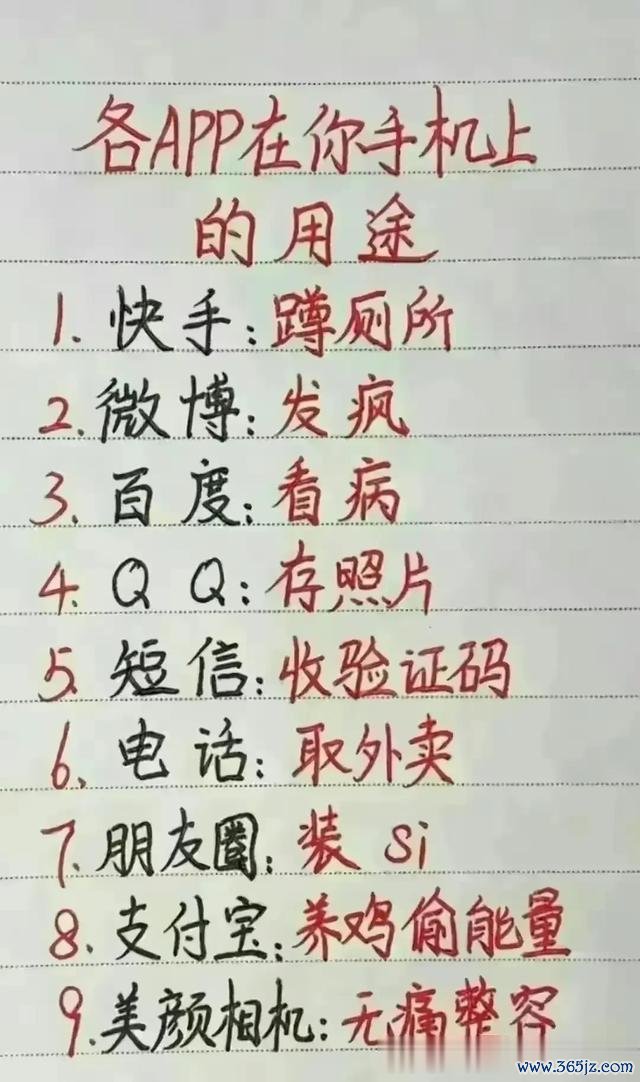 各APP在你手机上
的用途
1. 快手:蹲厕所
2. 微博:发疯
3. 百度:看病
4. QQ:存照片
5. 短信:收验证码
6. 电话:取外卖
7. 朋友圈:装 si
8. 支付宝:养鸡偷能量
9. 美颜相机:无痛整容
www.365jz.com